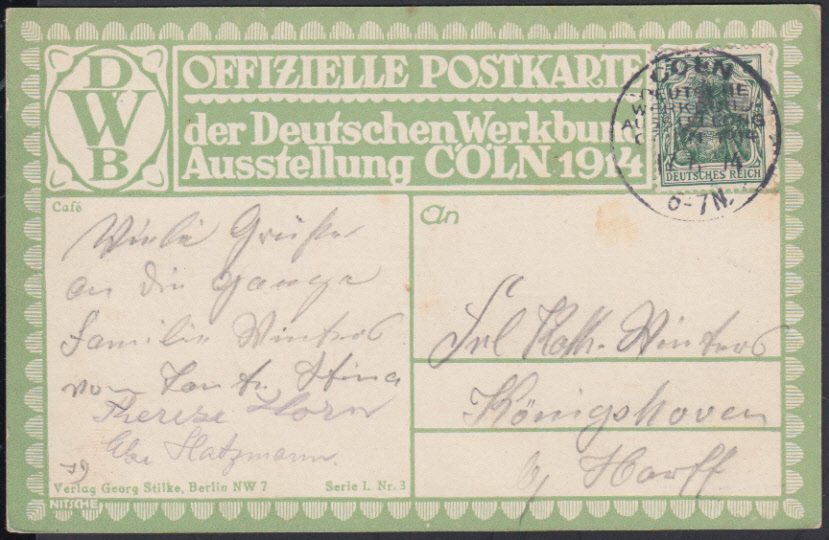 DWB
OFFIZIELLE POSTKARTE
der Deutschen Werkbund
Ausstellung CÖLN 1914
CÖLN
DEUTSCHE
WERKBUND
AUSSTELLUNG
CÖLN 1914
14
6-7N.
DEUTSCHES REICH
Café
Viele Grüße
an die ganze
Familie Winters
von Tante Stina
Therese Horn
Hatzmann.
An
Frl Kath. Winters
Königshoven
b/ Harff
Verlag Georg Stilke, Berlin NW 7
Serie I. Nr. 3
NITSCHE